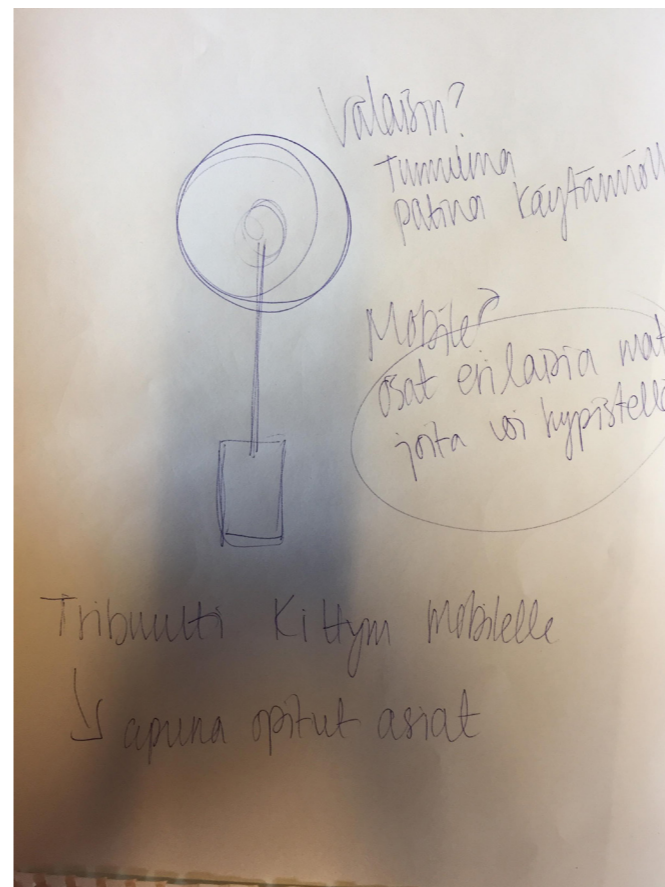 Valaisin?
Tummuma
patina käytännöll
Mobile?
osat erilaisia mat
joita voi hypistellä
Tribuutti Kittyn mobilelle
apuna opitut asiat